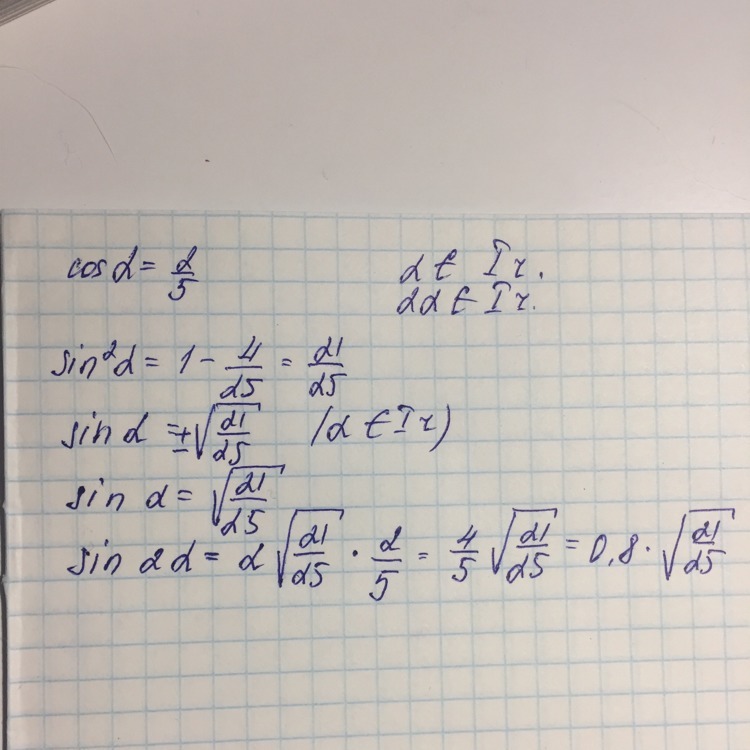 cos α = 2/5 α ∈ I г.
2α ∈ I г.
sin²α = 1 - 4/25 = 21/25
sin α = ±√(21/25) (α ∈ I г)
sin α = √(21/25)
sin 2α = 2√(21/25) · 2/5 = 4/5 √(21/25) = 0,8 · √(21/25)